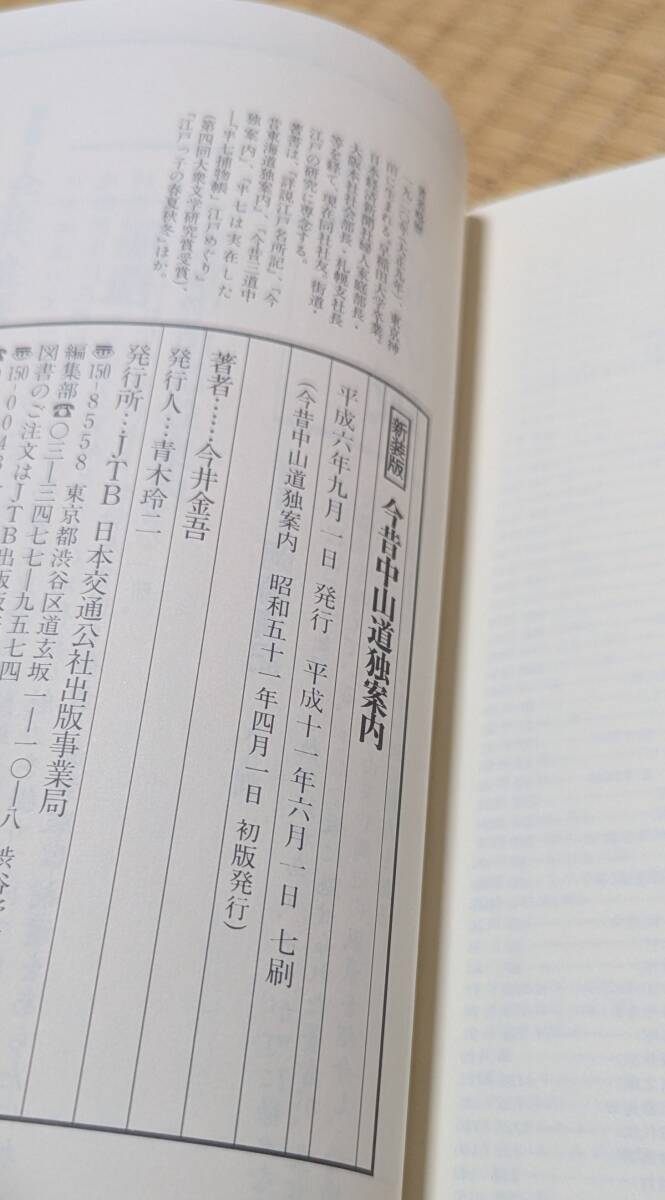 一九二〇年（大正九年）、東京神
田に生まれる。早稲田大学卒業。
日本経済新聞社婦人家庭部長・
大阪本社社会部長・札幌支社長
等を経て、現在同社社友。街道・
江戸の研究に専念する。
著書は、『詳説江戸名所記』、『今
昔東海道独案内』、『今昔三道中
独案内』、『半七は実在した
―「半七捕物帳」江戸めぐり』
（第四回大衆文学研究賞受賞）、
『江戸っ子の春夏秋冬』ほか。
新装版 今昔中山道独案内
平成六年九月一日 発行 平成十一年六月一日 七刷
（今昔中山道独案内 昭和五十一年四月一日 初版発行）
著者……今井金吾
発行人…青木玲二
発行所…JTB 日本交通公社出版事業局
〠150-8558 東京都渋谷区道玄坂一―一〇―八 渋谷
編集部☎〇三―三四七七―九五七四
図書のご注文はJTB出版販
〠150-0043